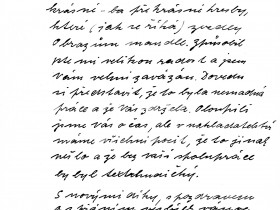 krásné – ba překrásné kresby,
které (jak se říká) zvedly
Obrazům mandle. Způsobil
jste mi velikou radost a jsem
Vám velmi zavázán. Dovedu
si představit, že to byla nesnadná
práce a že Vás zdržela. Oloupili
jsme Vás o čas, ale v nakladatelství
máme všichni pocit, že to jinak
nešlo a že bez Vaší spolupráce
by byl
S novými díky, s pozdravem
a s přáním